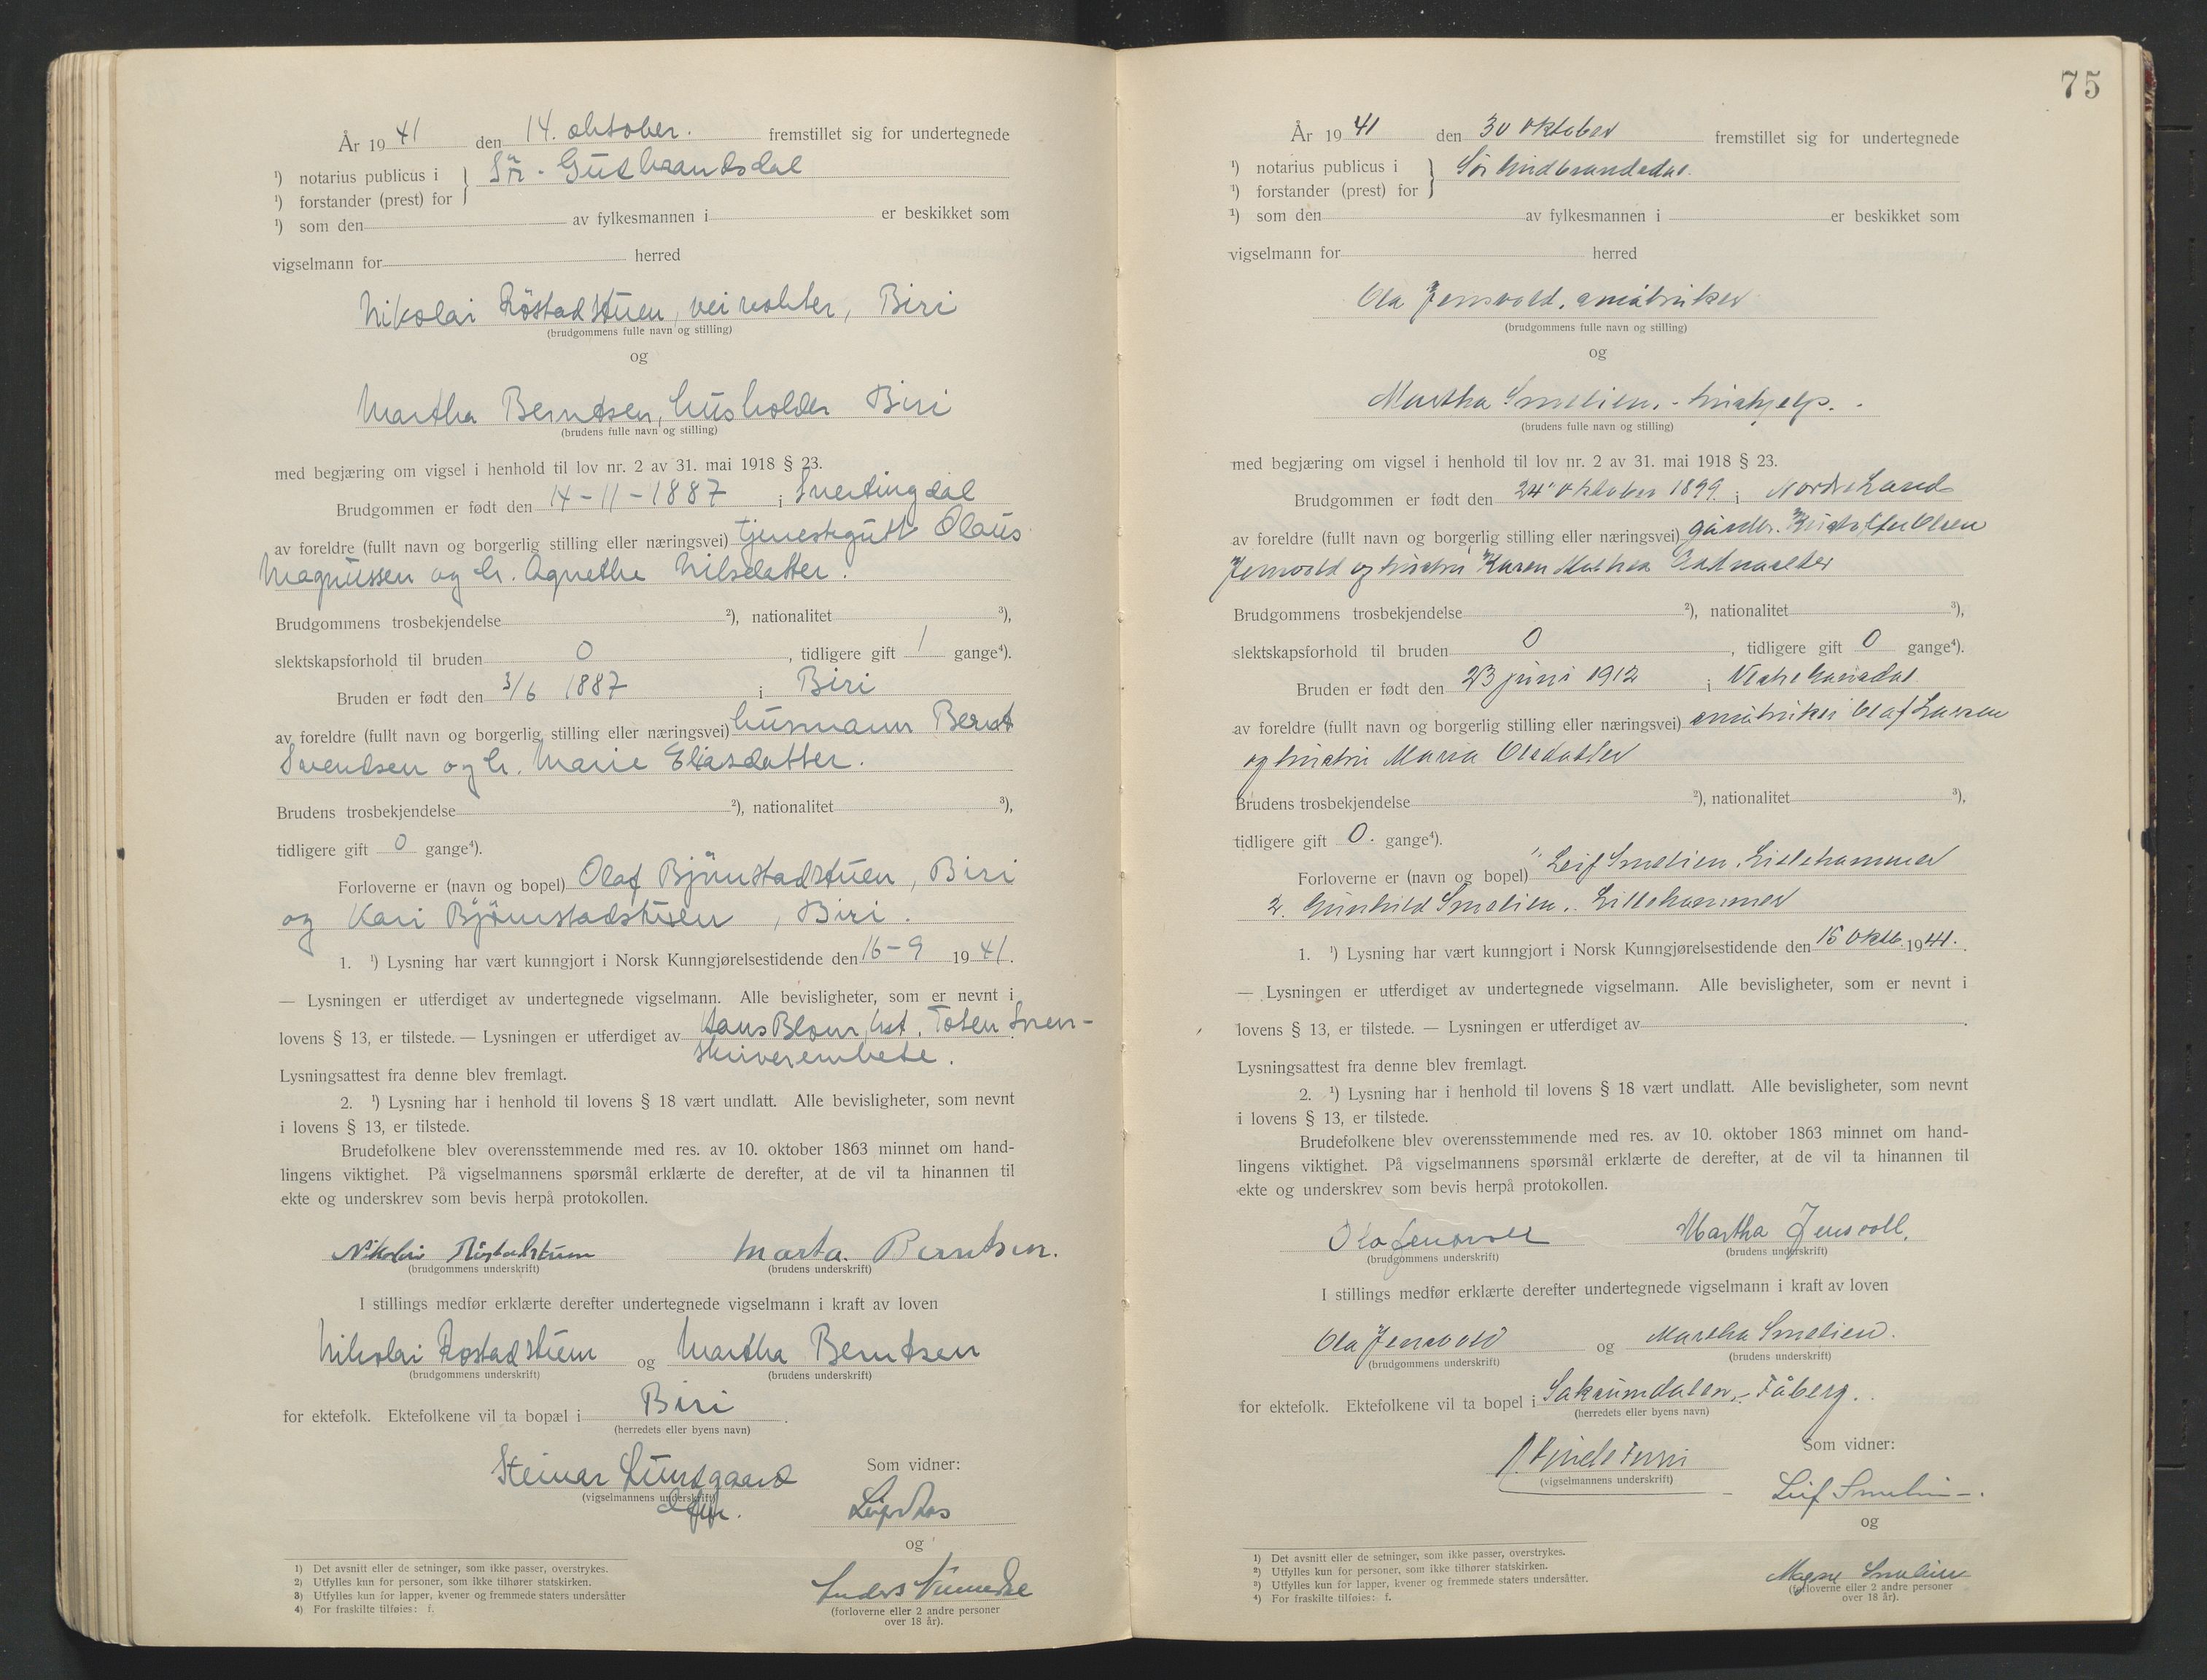 År 1941 den 14. oktober. fremstillet sig for undertegnede
¹) notarius publicus i } Sør-Gudbrandsdal
¹) forstander (prest) for
¹) som den av fylkesmannen i er beskikket som
vigselmann for herred
Nikolai Röstadstuen, veivokter, Biri
(brudgommens fulle navn og stilling)
og
Martha Berndsen, husholder Biri
(brudens fulle navn og stilling)
med begjæring om vigsel i henhold til lov nr. 2 av 31. mai 1918 § 23.
Brudgommen er født den 14-11-1887 i Snertingdal
av foreldre (fullt navn og borgerlig stilling eller næringsvei) tjenestegutt Olaus
Magnussen og h. Agnethe Nilsdatter.
Brudgommens trosbekjendelse ²), nationalitet ³),
slektskapsforhold til bruden 0, tidligere gift 1 gange⁴).
Bruden er født den 3/6 1887 i Biri
av foreldre (fullt navn og borgerlig stilling eller næringsvei) husmann Bernt
Svendsen og h. Marie Eliasdatter.
Brudens trosbekjendelse ²), nationalitet ³),
tidligere gift 0 gange⁴).
Forloverne er (navn og bopel) Olaf Björnstadstuen, Biri
og Kari Björnstadstuen, Biri.
1. ¹) Lysning har vært kunngjort i Norsk Kunngjørelsestidende den 16-9 1941.
— Lysningen er utferdiget av undertegnede vigselmann. Alle bevisligheter, som er nevnt i
lovens § 13, er tilstede. — Lysningen er utferdiget av Hans Blom, kst. Toten Soren-
skriverembete.
Lysningsattest fra denne blev fremlagt.
2. ¹) Lysning har i henhold til lovens § 18 vært undlatt. Alle bevisligheter, som nevnt
i lovens § 13, er tilstede.
Brudefolkene blev overensstemmende med res. av 10. oktober 1863 minnet om hand-
lingens viktighet. På vigselmannens spørsmål erklærte de derefter, at de vil ta hinannen til
ekte og underskrev som bevis herpå protokollen.
Nikolai Röstadstuen Marta Berntsen.
(brudgommens underskrift) (brudens underskrift)
I stillings medfør erklærte derefter undertegnede vigselmann i kraft av loven
Nikolai Rostadstuen og Martha Berndsen
(brudgommens underskrift) (brudens underskrift)
for ektefolk. Ektefolkene vil ta bopæl i Biri.
(herredets eller byens navn)
Steinar Lundgaard
(vigselmannens underskrift)
Som vidner:
og
Anders
(forloverne eller 2 andre personer
over 18 år).
1) Det avsnitt eller de setninger, som ikke passer, overstrykes.
2) Utfylles kun for personer, som ikke tilhører statskirken.
3) Utfylles kun for lapper, kvener og fremmede staters undersåtter
4) For fraskilte tilføies: f.
75
År 1941 den 30 oktober fremstillet sig for undertegnede
¹) notarius publicus i } Sør Gudbrandsdal.
¹) forstander (prest) for
¹) som den av fylkesmannen i er beskikket som
vigselmann for herred
Ola Jensvold, småbruker
(brudgommens fulle navn og stilling)
og
Martha Smelien, - hushjelp.
(brudens fulle navn og stilling)
med begjæring om vigsel i henhold til lov nr. 2 av 31. mai 1918 § 23.
Brudgommen er født den 24' oktober 1899 i Nordre Land
av foreldre (fullt navn og borgerlig stilling eller næringsvei) gårdbr. Kristoffer Olsen
Jensvold og hustru Karen Mathea
Brudgommens trosbekjendelse ²), nationalitet ³),
slektskapsforhold til bruden 0, tidligere gift 0 gange⁴).
Bruden er født den 23 juni 1912 i Vestre Gausdal
av foreldre (fullt navn og borgerlig stilling eller næringsvei) småbruker Olaf Larsen
og hustru Maria Olsdatter
Brudens trosbekjendelse ²), nationalitet ³),
tidligere gift 0. gange⁴).
Forloverne er (navn og bopel) 1. Leif Smelien, Lillehammer
2. Gunhild Smelien, Lillehammer
1. ¹) Lysning har vært kunngjort i Norsk Kunngjørelsestidende den 15 oktb. 1941.
— Lysningen er utferdiget av undertegnede vigselmann. Alle bevisligheter, som er nevnt i
lovens § 13, er tilstede. — Lysningen er utferdiget av
Lysningsattest fra denne blev fremlagt.
2. ¹) Lysning har i henhold til lovens § 18 vært undlatt. Alle bevisligheter, som nevnt
i lovens § 13, er tilstede.
Brudefolkene blev overensstemmende med res. av 10. oktober 1863 minnet om hand-
lingens viktighet. På vigselmannens spørsmål erklærte de derefter, at de vil ta hinannen til
ekte og underskrev som bevis herpå protokollen.
Ola Jensvoll Martha Jensvoll.
(brudgommens underskrift) (brudens underskrift)
I stillings medfør erklærte derefter undertegnede vigselmann i kraft av loven
Ola Jensvold og Martha Smelien.
(brudgommens underskrift) (brudens underskrift)
for ektefolk. Ektefolkene vil ta bopel i Saksumdalen, - Fåberg.
(herredets eller byens navn)
(vigselmannens underskrift)
Som vidner:
Leif Smelien
og
Magne Smelien
(forloverne eller 2 andre personer
over 18 år).
1) Det avsnitt eller de setninger, som ikke passer, overstrykes.
2) Utfylles kun for personer, som ikke tilhører statskirken.
3) Utfylles kun for lapper, kvener og fremmede staters undersåtter.
4) For fraskilte tilføies: f.